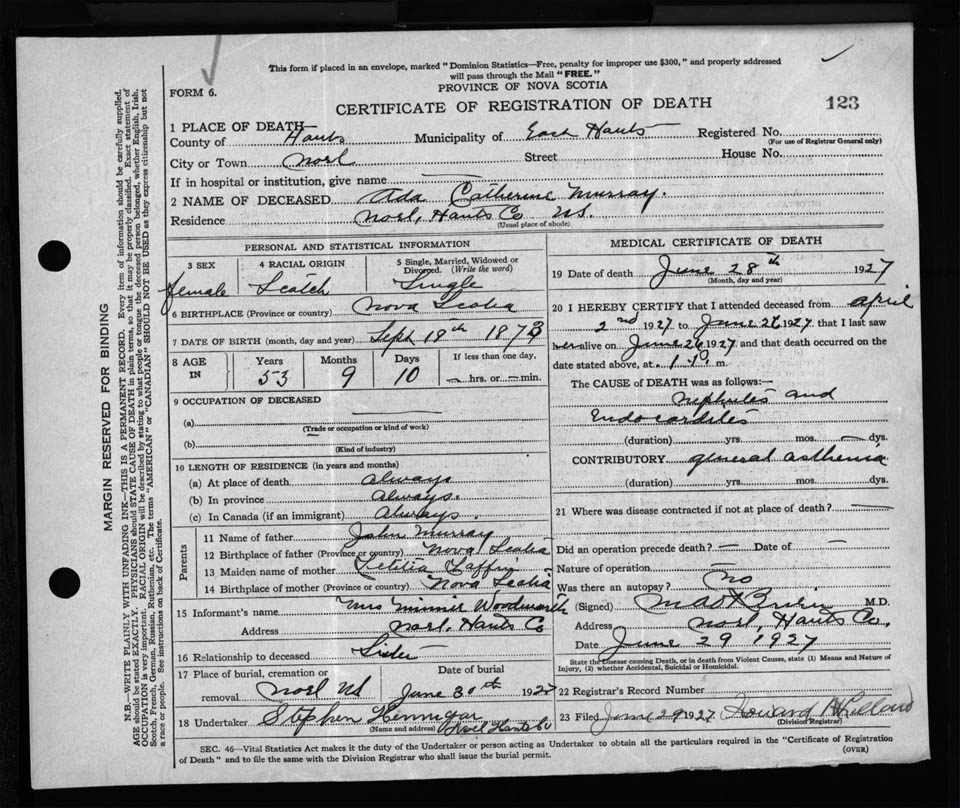 This form if placed in an envelope, marked "Dominion Statistics—Free, penalty for improper use $300," and properly addressed
will pass through the Mail "FREE."
FORM 6.
PROVINCE OF NOVA SCOTIA
CERTIFICATE OF REGISTRATION OF DEATH
123
1 PLACE OF DEATH
County of Hants Municipality of East Hants Registered No.
(For use of Registrar General only)
City or Town Noel Street House No.
If in hospital or institution, give name —
2 NAME OF DECEASED Ada Catherine Murray.
Residence Noel, Hants Co NS.
(Usual place of abode)
PERSONAL AND STATISTICAL INFORMATION
3 SEX 4 RACIAL ORIGIN 5 Single, Married, Widowed or
Divorced. (Write the word)
female Scotch Single
6 BIRTHPLACE (Province or country) Nova Scotia
7 DATE OF BIRTH (month, day and year) Sept 18th 1873
8 AGE IN Years Months Days If less than one day,
53 9 10 — hrs. or — min.
9 OCCUPATION OF DECEASED
(a) —
(Trade or occupation or kind of work)
(b)
(Kind of industry)
10 LENGTH OF RESIDENCE (in years and months)
(a) At place of death always
(b) In province always.
(c) In Canada (if an immigrant) always.
Parents
11 Name of father John Murray
12 Birthplace of father (Province or country) Nova Scotia
13 Maiden name of mother Letitia
14 Birthplace of mother (Province or country) Nova Scotia
15 Informant's name Mrs Minnie Woodworth
Address Noel, Hants Co
16 Relationship to deceased Sister
17 Place of burial, cremation or Date of burial
removal Noel NS June 30th 1927
18 Undertaker Stephen Hennigar
(Name and address) Noel Hants Co
MEDICAL CERTIFICATE OF DEATH
19 Date of death June 28th 1927
(Month, day and year)
20 I HEREBY CERTIFY that I attended deceased from april
2nd 1927 to June 26 1927, that I last saw
her alive on June 26 1927 and that death occurred on the
date stated above, at m.
The CAUSE OF DEATH was as follows:—
nephritis and
Endocarditis
(duration) yrs. mos. — dys.
CONTRIBUTORY general asthenia
(duration) yrs. mos. dys.
21 Where was disease contracted if not at place of death? —
Did an operation precede death? — Date of —
Nature of operation
Was there an autopsy? no
(Signed) M.D.
Address Noel, Hants Co.
Date June 29 1927
State the Disease causing Death, or in death from Violent Causes, state (1) Means and Nature of
Injury, (2) whether Accidental, Suicidal or Homicidal.
22 Registrar's Record Number
23 Filed June 29 1927 Howard
(Division Registrar)
SEC. 46—Vital Statistics Act makes it the duty of the Undertaker or person acting as Undertaker to obtain all the particulars required in the "Certificate of Registration
of Death" and to file the same with the Division Registrar who shall issue the burial permit.
(OVER)
MARGIN RESERVED FOR BINDING
N.B.—WRITE PLAINLY WITH UNFADING INK—THIS IS A PERMANENT RECORD. Every item of information should be carefully supplied.
AGE should be stated EXACTLY. PHYSICIANS should STATE CAUSE OF DEATH in plain terms, so that it may be properly classified. Exact statement of
OCCUPATION is very important. RACIAL ORIGIN will be described by stating to what people or tongue the deceased person belonged, whether English, Irish,
Scotch, French, German, Russian, Ruthenian, etc. The terms "AMERICAN" or "CANADIAN" SHOULD NOT BE USED as they express citizenship but not
a race or people. See instructions on back of Certificate.